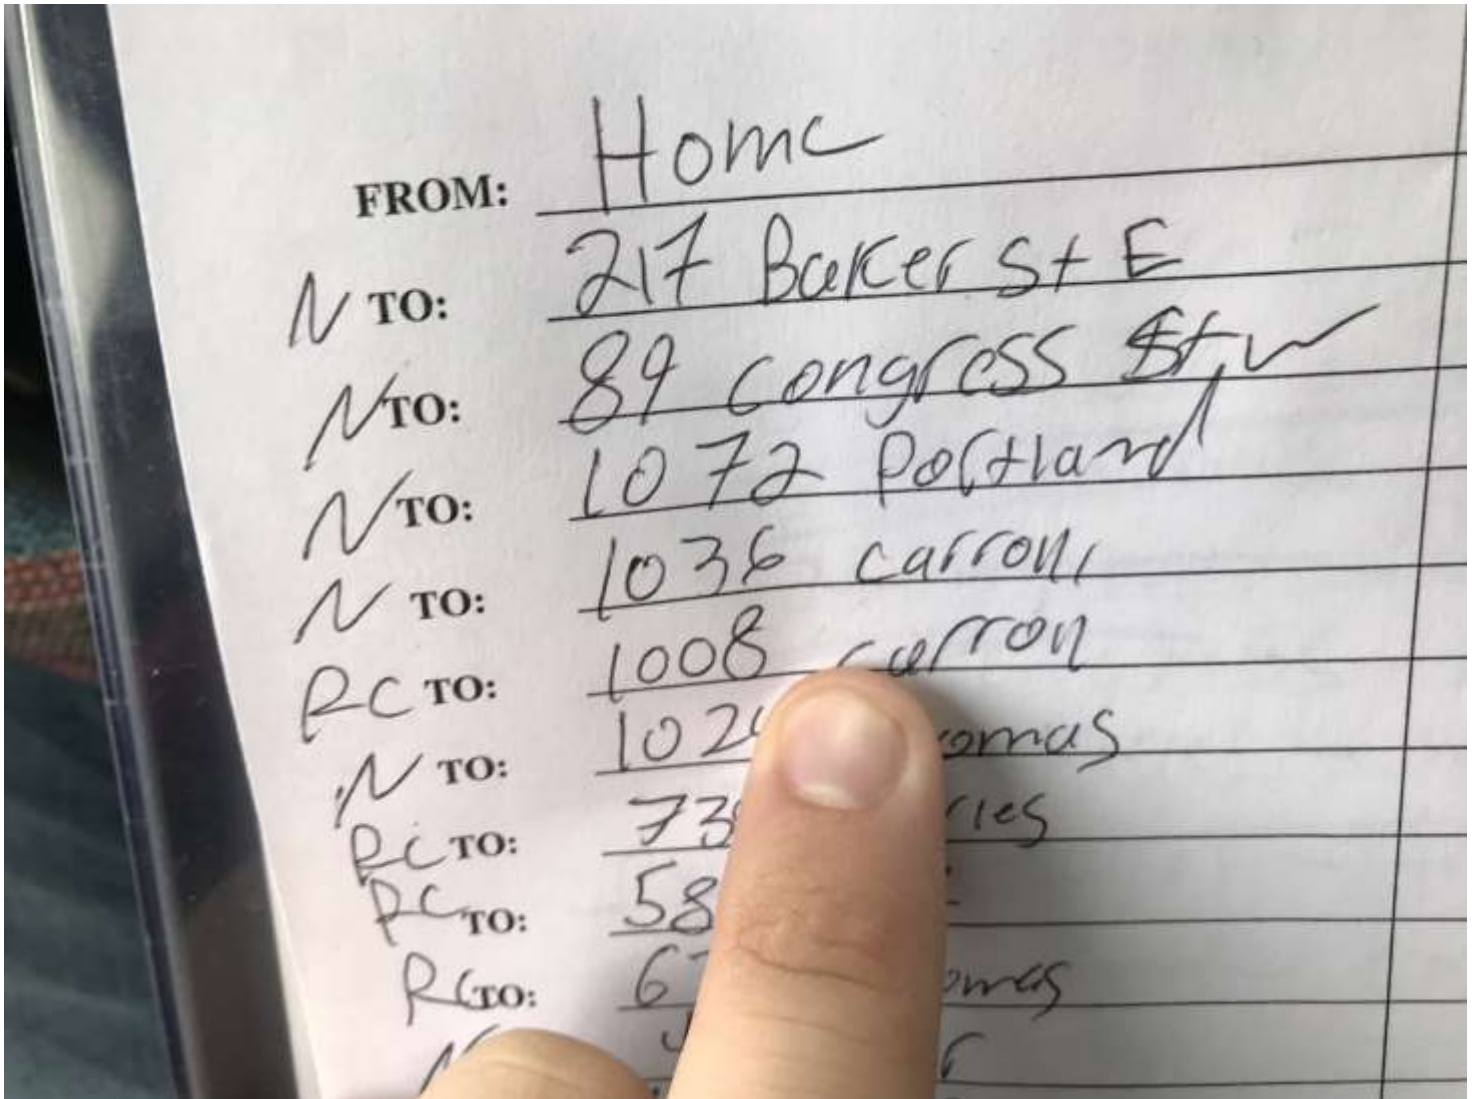 FROM: Home
N TO: 217 Baker St E
N TO: 89 congress St W
N TO: 1072 Portland
N TO: 1036 carron
RC TO: 1008 carron
N TO:
RC TO:
RC TO:
RC TO: